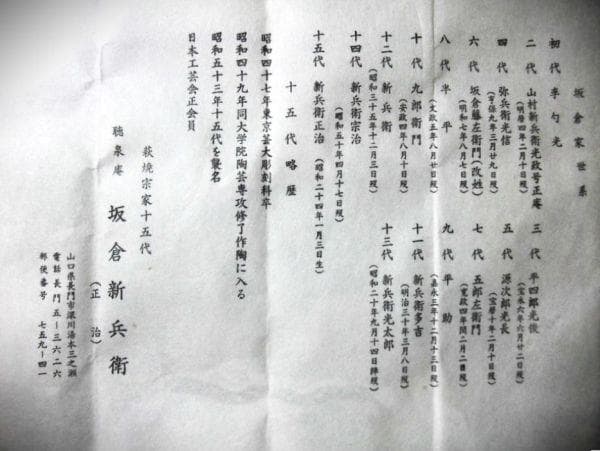 坂倉家世系
初代 李勺光
二代 山村新兵衛光政号正庵
(明暦四年二月十日歿)
三代 平四郎光俊
(宝永六年六月廿二日歿)
四代 弥兵衛光信
(享保九年三月廿九日歿)
五代 源次郎光長
(宝暦十年二月十日歿)
六代 坂倉藤左衛門(改姓)
(明和七年八月七日歿)
七代 五郎左衛門
(寛政四年閏二月二日歿)
八代 半平
(文政五年八月廿日歿)
九代 平助
(嘉永三年十二月十三日歿)
十代 九郎衛門
(安政四年八月十日歿)
十一代 新兵衛多吉
(明治三十年三月八日歿)
十二代 新兵衛
(昭和三十五年十二月三日歿)
十三代 新兵衛光太郎
(昭和二十年九月十四日陣歿)
十四代 新兵衛宗治
(昭和五十年四月十七日歿)
十五代 新兵衛正治 (昭和二十四年一月三日生)
十五代略歴
昭和四十七年東京芸大彫刻科卒
昭和四十九年同大学院陶芸専攻修了作陶に入る
昭和五十三年十五代を襲名
日本工芸会正会員
萩焼宗家十五代
聴泉庵 坂倉新兵衛
(正治)
山口県長門市深川湯本三之瀬
電話長門五ー三六二六
郵便番号 七五九ー四一